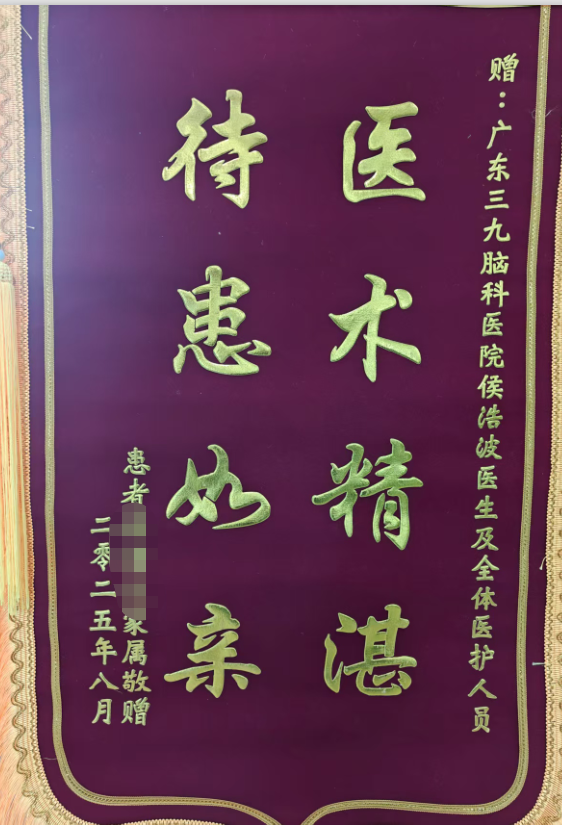 赠：广东三九脑科医院侯浩波医生及全体医护人员
医术精湛
待患如亲
患者家属敬赠
二零二五年八月